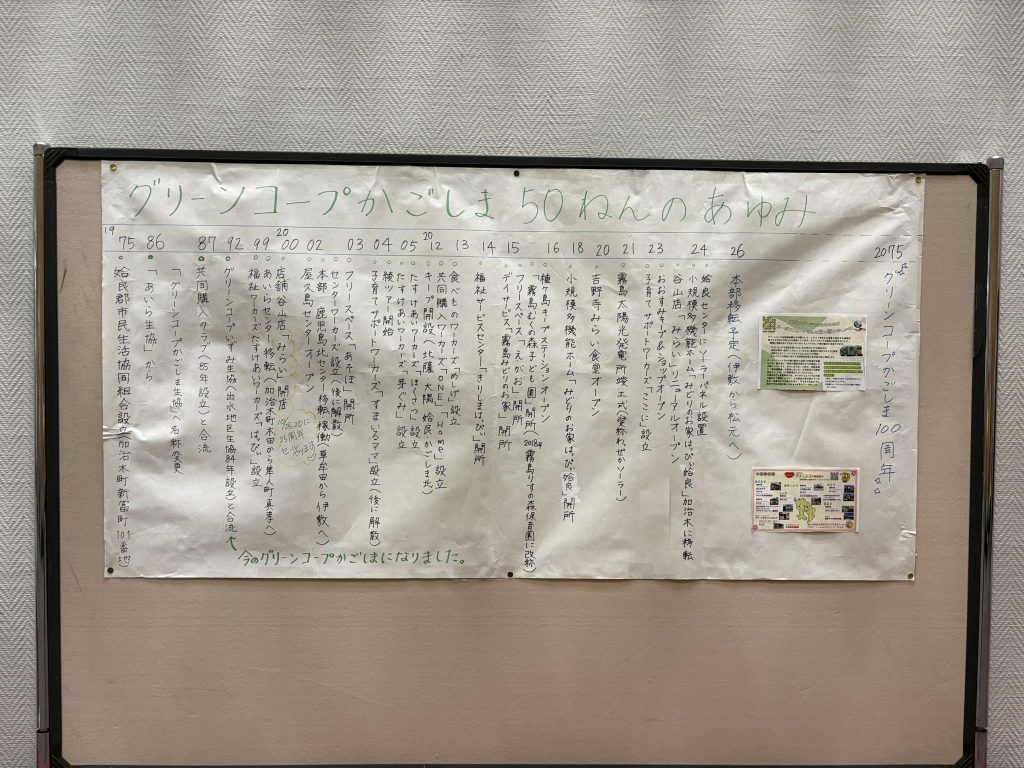 グリーンコープかごしま 50ねんのあゆみ
1975
姶良郡市民生活協同組合設立(加治木町新富町101番地)
86
「あいら生協」から
「グリーンコープかごしま生協」へ名称変更
87
共同購入クラブ(85年設立)と合流
92
グリーンコープいずみ生協(出水地区生協84年設立)と合流
今のグリーンコープかごしまになりました。
99
福祉ワーカーズたすけあいワーカーズ「はっぴぃ」設立
あいらセンター移転(加治木町木田から隼人町真孝へ)
2000
店舗谷山店「みらい」開店
25周年
02
屋久島センターオープン
本部・鹿児島北センター移転稼働(草牟田から伊敷へ)
センターワーカーズ設立(後に解散)
03
フリースペース「あそぼ」開所
04
子育てサポートワーカーズ「すまいるママ」設立(後に解散)
検ツアー開始
05
たすけあいワーカーズ「芽ぐみ」設立
たすけあいワーカーズ「ほくさつ」設立
2012
キープ開設へ 北薩 大隅 姶良 かごしま北)
共同購入ワーカーズ「ONE」「Home」設立
13
食べものワーカーズ「めしげ」設立
14
福祉サービスセンター「きりしまはっぴぃ」開所
15
デイサービス「霧島みどりのお家」開所
フリースペース「えがお」開所
「霧島むくの森子ども園」開所(2018年霧島りすの森保育園に改称)
16
種子島キープステーションオープン
18
小規模多機能ホーム「みどりのお家はっぴぃ姶良」開所
20
吉野寺みらい食堂オープン
21
霧島太陽光発電所竣工式(愛称わぜかソーラー)
23
子育てサポートワーカーズ「ここに」設立
おおすみキープ&ショップオープン
谷山店「みらい」リニューアルオープン
24
小規模多機能ホーム「みどりのお家はっぴぃ姶良」加治木に移転
姶良センターにソーラーパネル設置
26
本部移転予定(伊敷から松元へ)
2075
☆グリーンコープかごしま100周年☆☆